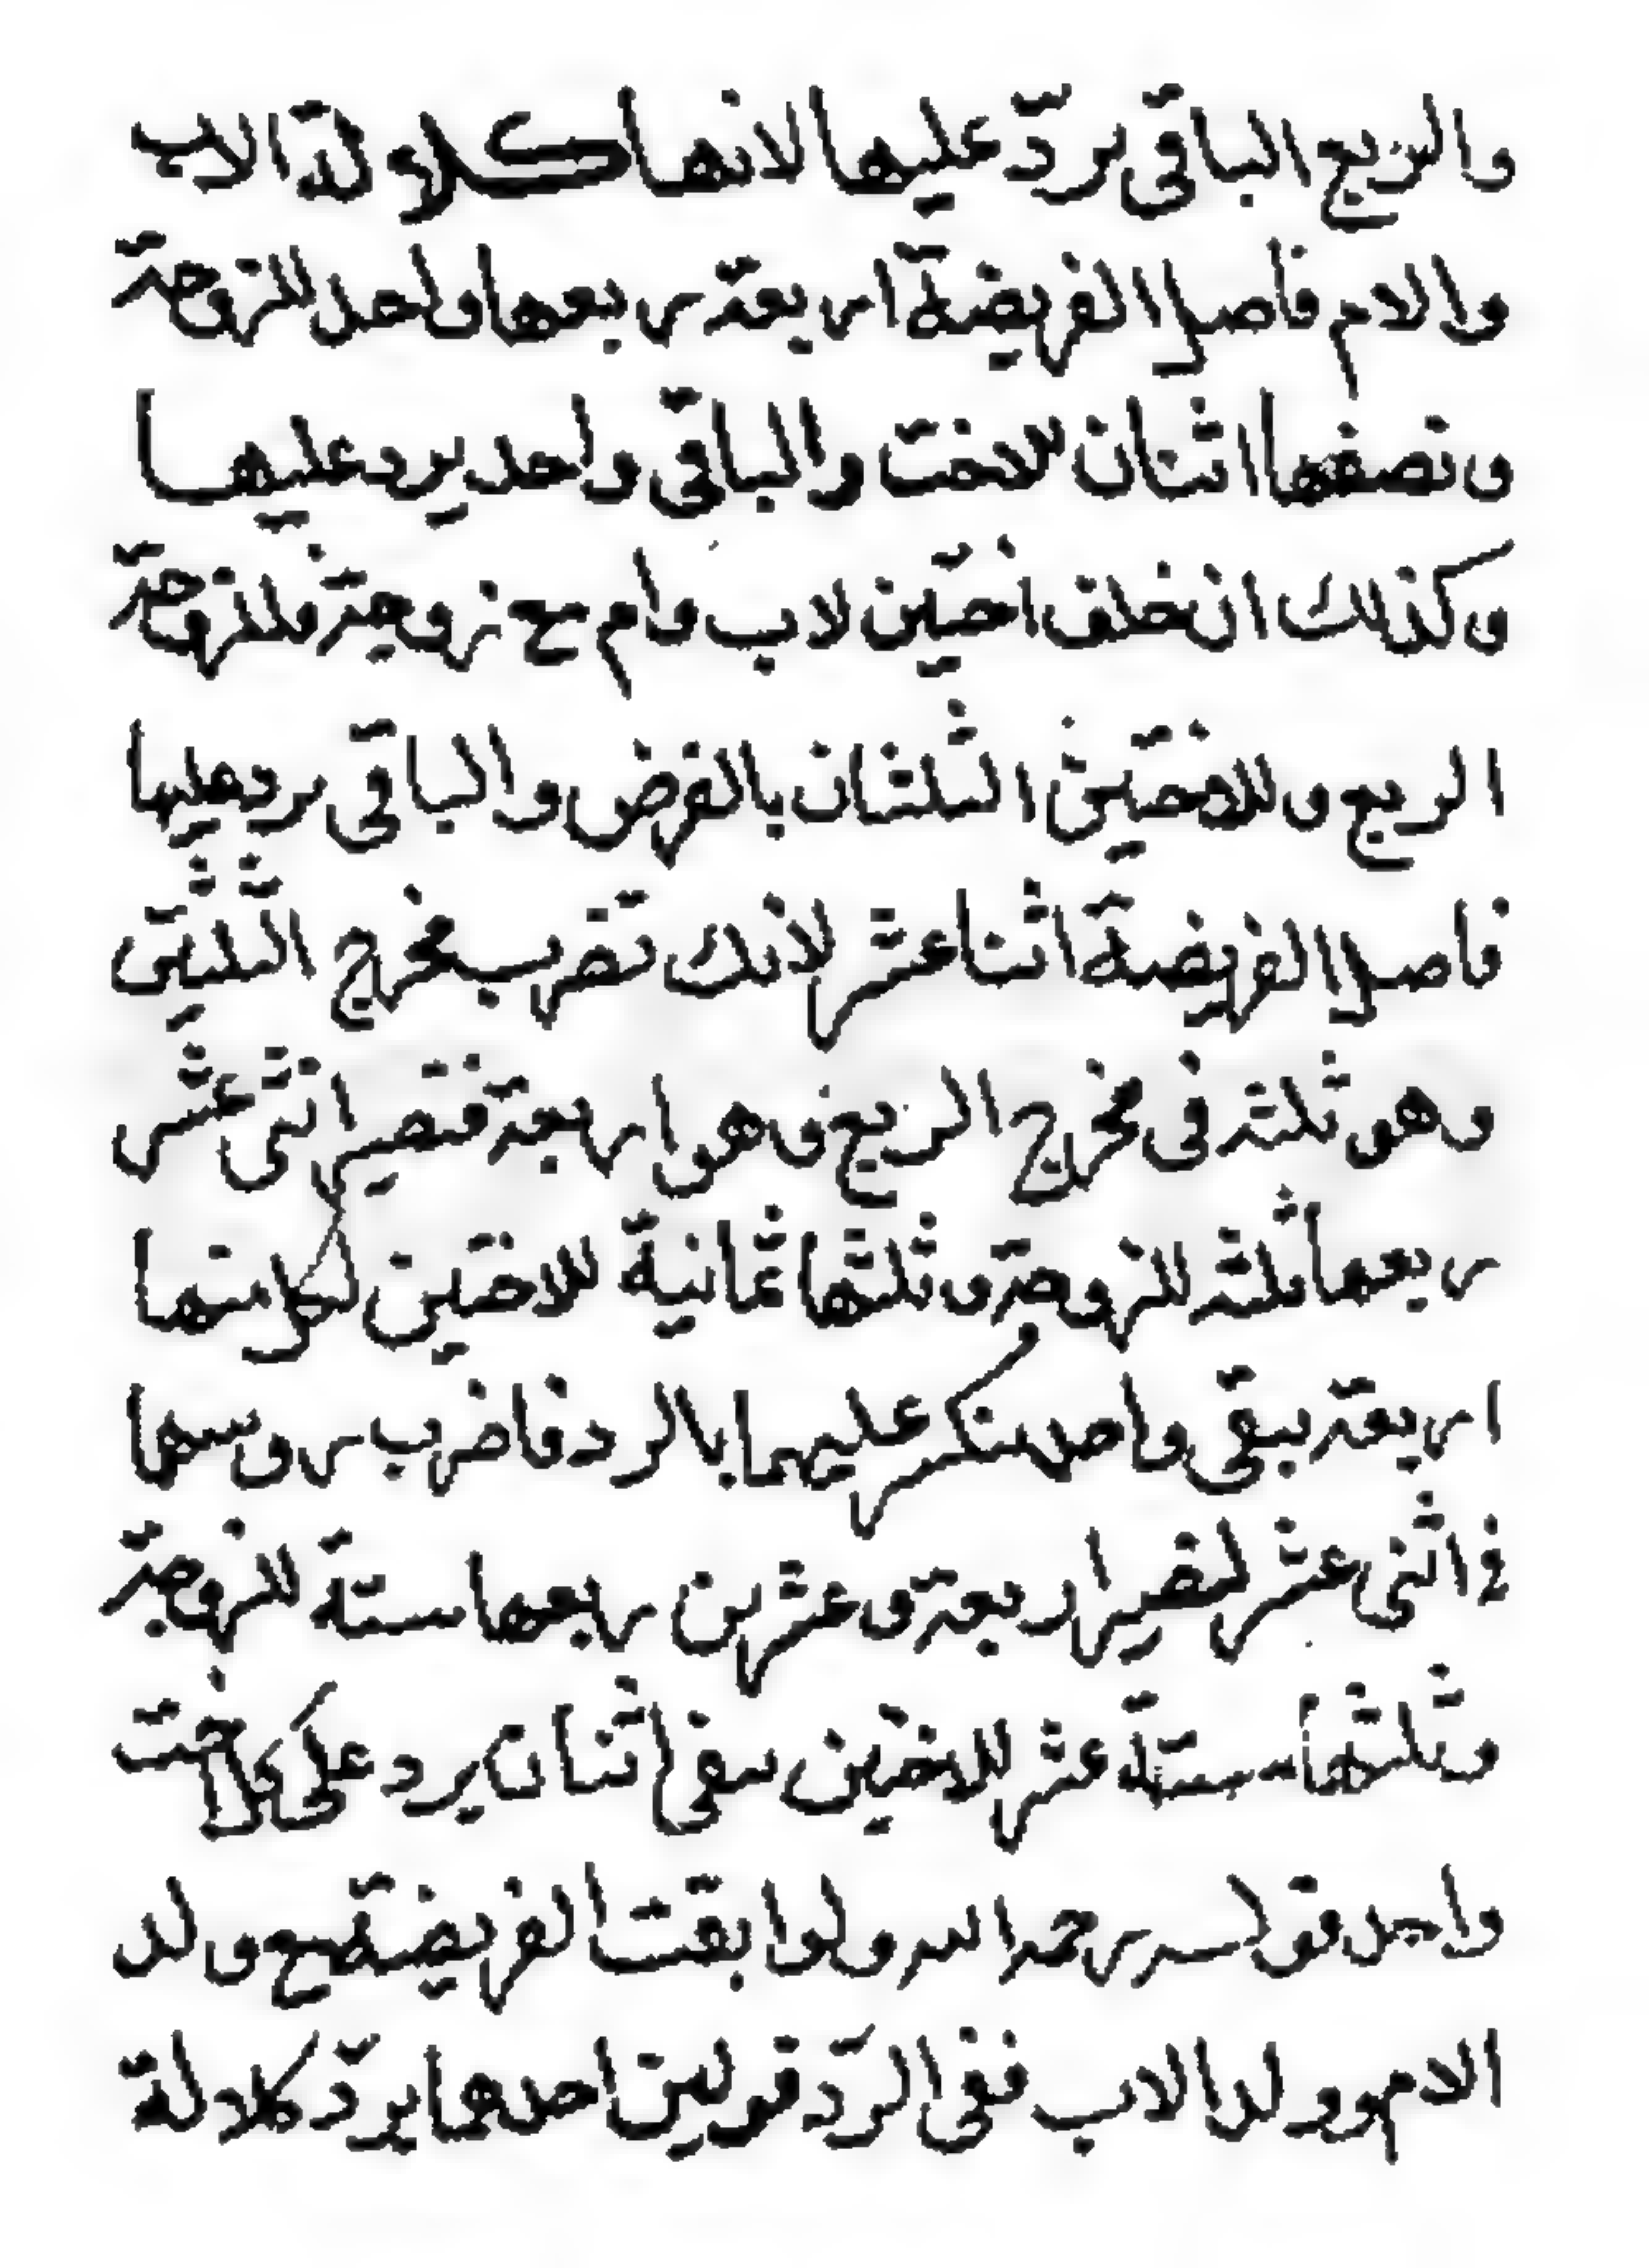 والربع الباقى يردّ عليها لانها كلالة الاب
والام فاصل الفريضة اربعة ربعها واحد للزوجة
ونصفها اثنان للاخت والباقى واحد يرد عليها
وكذلك ان خلف اختين لاب وام مع زوجة فللزوجة
الربع وللاختين الثلثان بالفرض والباقى يرد عليها
فاصل الفريضة اثنا عشر لانك تضرب مخرج الثلثين
وهو ثلثة فى مخرج الربع وهو اربعة فتصير اثنى عشر
ربعها ثلثة للزوجة وثلثها ثمانية للاختين لكل منها
اربعة يبقى واحد منكسر عليهما بالرد فاضرب روسها
فى اثنى عشر لتصير اربعة وعشرين ربعها ستة للزوجة
وثلثها ستة عشر للاختين يبقى اثنان يرد على كل اخت
واحد قوله رحمه الله ولو ابقت الفريضة مع ولد
الام وولد الاب ففى الردّ قولين احدهما يردّ كلالة